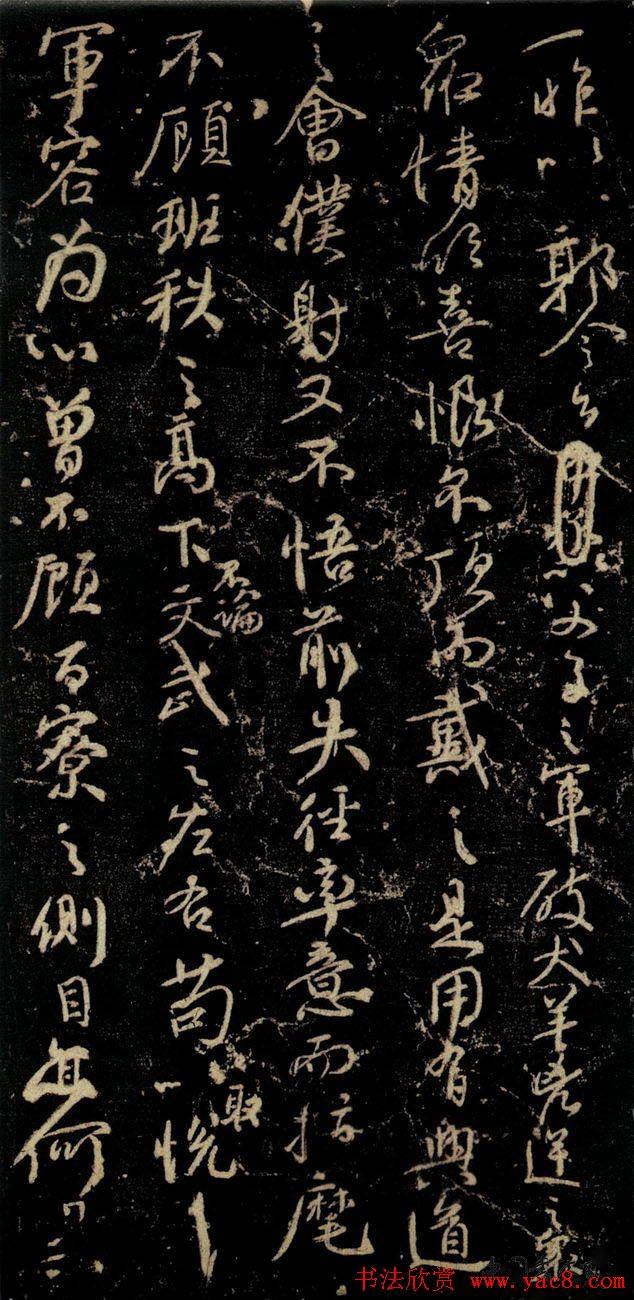 一昨以郭令公以父子之軍破犬羊兇逆之眾
眾情欣喜恨不頂而戴之是用有興道
之會僕射又不悟前失徑率意而指麾
不顧班秩之高下不論文武之左右苟以取悅
軍容為心曾不顧百寮之側目亦何
书法欣赏 www.yac8.com